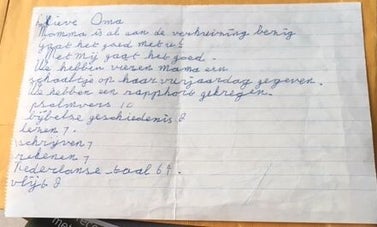 Lieve Oma
Momma is al aan de verhuizing bezig
gaat het goed met u?
Met mij gaat het goed.
We hebben vieren mama een
schaaltje op haar verjaardag gegeven.
We hebben een rapphort gekregen.
psalmvers 10
bijbelse geschiedenis 8
lezen 7.
schrijven 7
rekenen 7
Nederlanse taal 6½
vlijt 8